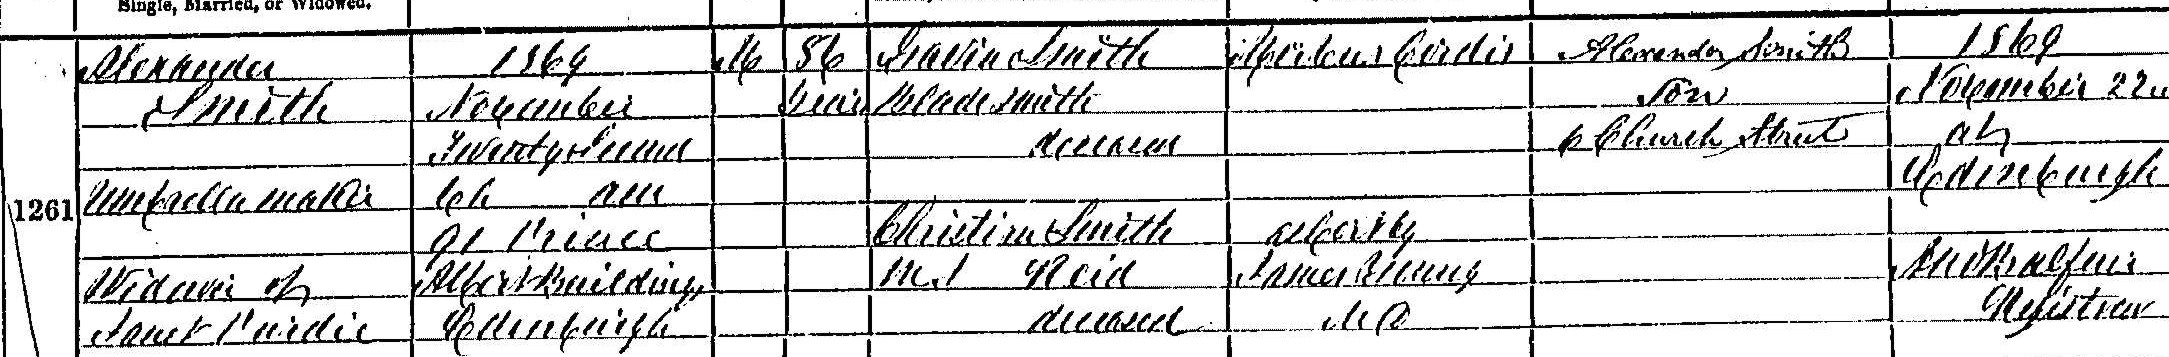 Single, Married, or Widowed.
1261
Alexander
Smith
Umbrella maker
Widower of
Janet Purdie
1869
November
Twenty Second
6h am
91 Prince
Albert Buildings
Edinburgh
M
86
years
Gavin Smith
Bladesmith
deceased
Christina Smith
M.S Reid
deceased
Morbus Cordis
as cert by
James Young
MD
Alexander Smith
Son
6 Church Street
1869
November 22
at
Edinburgh
Balfour
Registrar